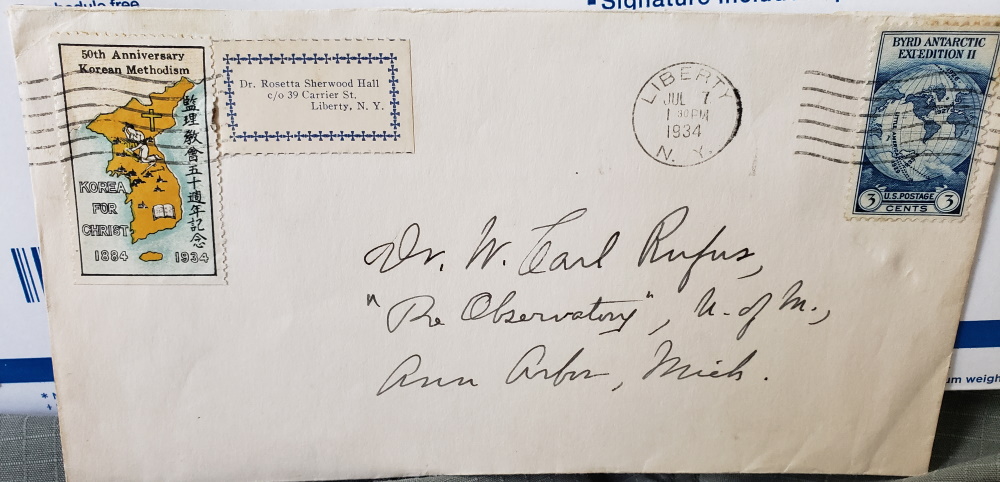 schedule free
Signature includ
50th Anniversary
Korean Methodism
監理教會五十週年記念
KOREA
FOR
CHRIST
1884 1934
Dr. Rosetta Sherwood Hall
c/o 39 Carrier St.
Liberty, N. Y.
LIBERTY
JUL 7
1 30 PM
1934
N. Y.
BYRD ANTARCTIC
EXPEDITION II
LITTLE AMERICA
U.S. POSTAGE
3 CENTS 3
Dr. W. Carl Rufus,
"The Observatory", U. of M.,
Ann Arbor, Mich.
um weigh